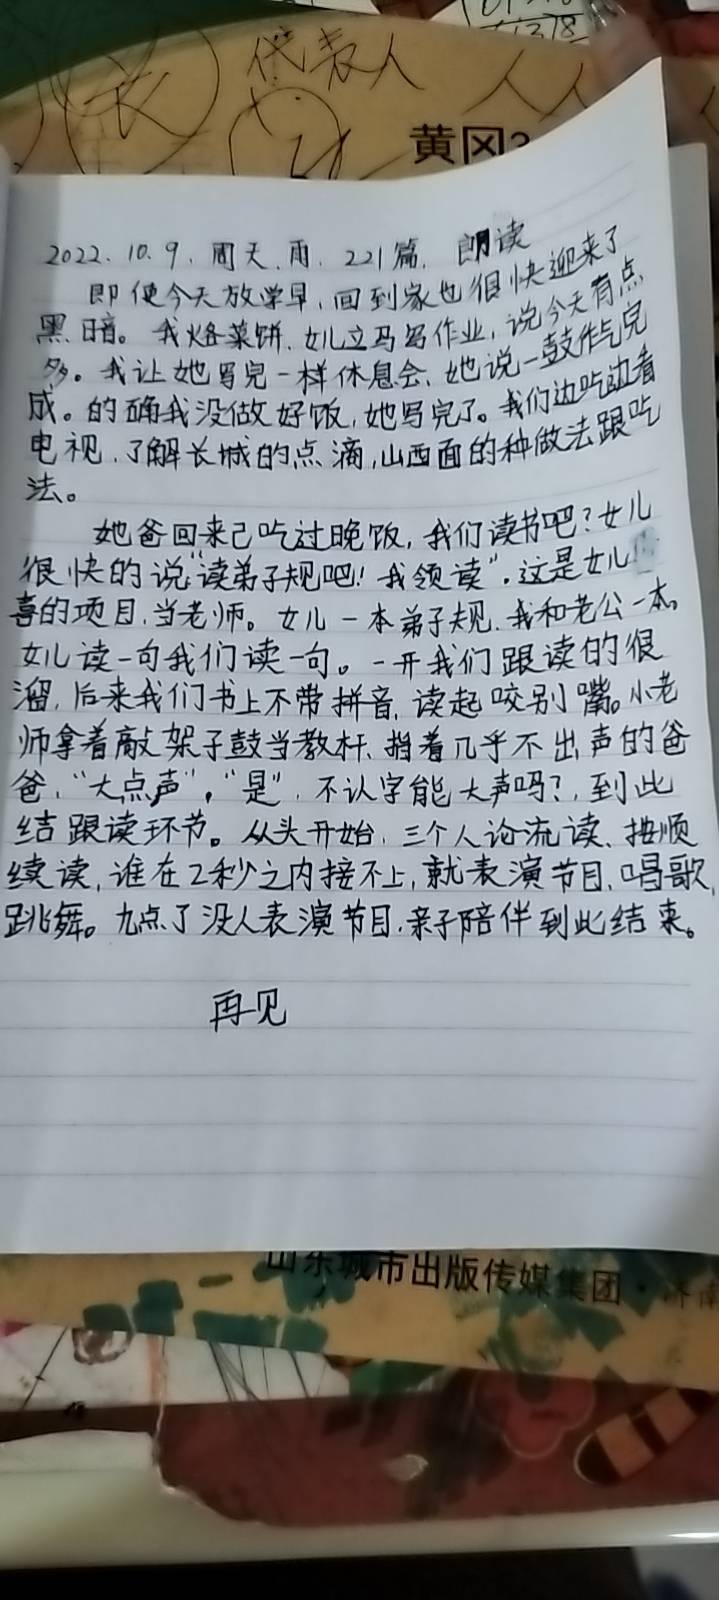 代表人
人人
黄冈
2022.10.9.周天.雨.221篇.朗读
即使今天放学早,回到家也很快迎来了
黑暗。我烙菜饼.女儿立马写作业,说今天有点
多。我让她写完一样休息会、她说一鼓作气完
成。的确我没做好饭,她写完了。我们边吃边看
电视.了解长城的点滴,山西面的种做法跟吃
法。
她爸回来已吃过晚饭,我们读书吧?女儿
很快的说:“读弟子规吧!我领读”.这是女儿
喜的项目.当老师。女儿一本弟子规.我和老公一本。
女儿读一句我们读一句。一开我们跟读的很
溜,后来我们书上不带拼音,读起咬别嘴。小老
师拿着敲架子鼓当教杆、指着几乎不出声的爸
爸.“大点声”,“是”.不认字能大声吗?,到此
结跟读环节。从头开始,三个人论流读、按顺
续读,谁在2秒之内接不上,就表演节目.唱歌,
跳舞。九点了没人表演节目.亲子陪伴到此结束。
再见
山东城市出版传媒集团·济南